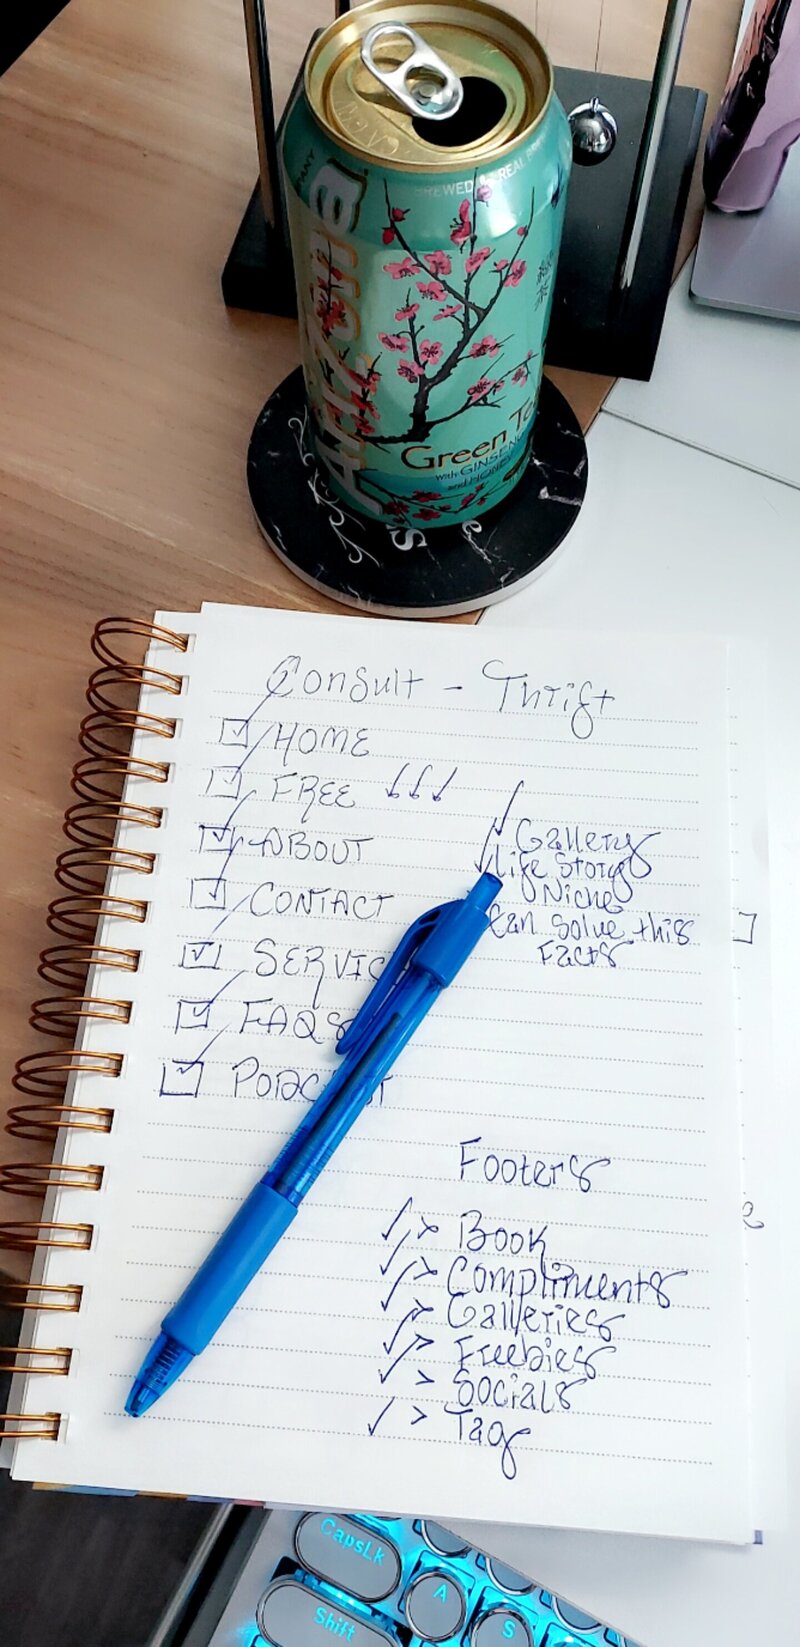 AriZona
BREWED
REAL
Green Te
With GINSENG
and HONEY
Consult - Thrift
HOME
FREE
ABOUT
CONTACT
SERVIC
FAQS
PODC
Gallery
life Story
Niche
Can Solve this
Facts
Footers
> Book
> Compliments
> Galleries
> Freebies
> Socials
> Tag
CapsLk
A
Shift
S